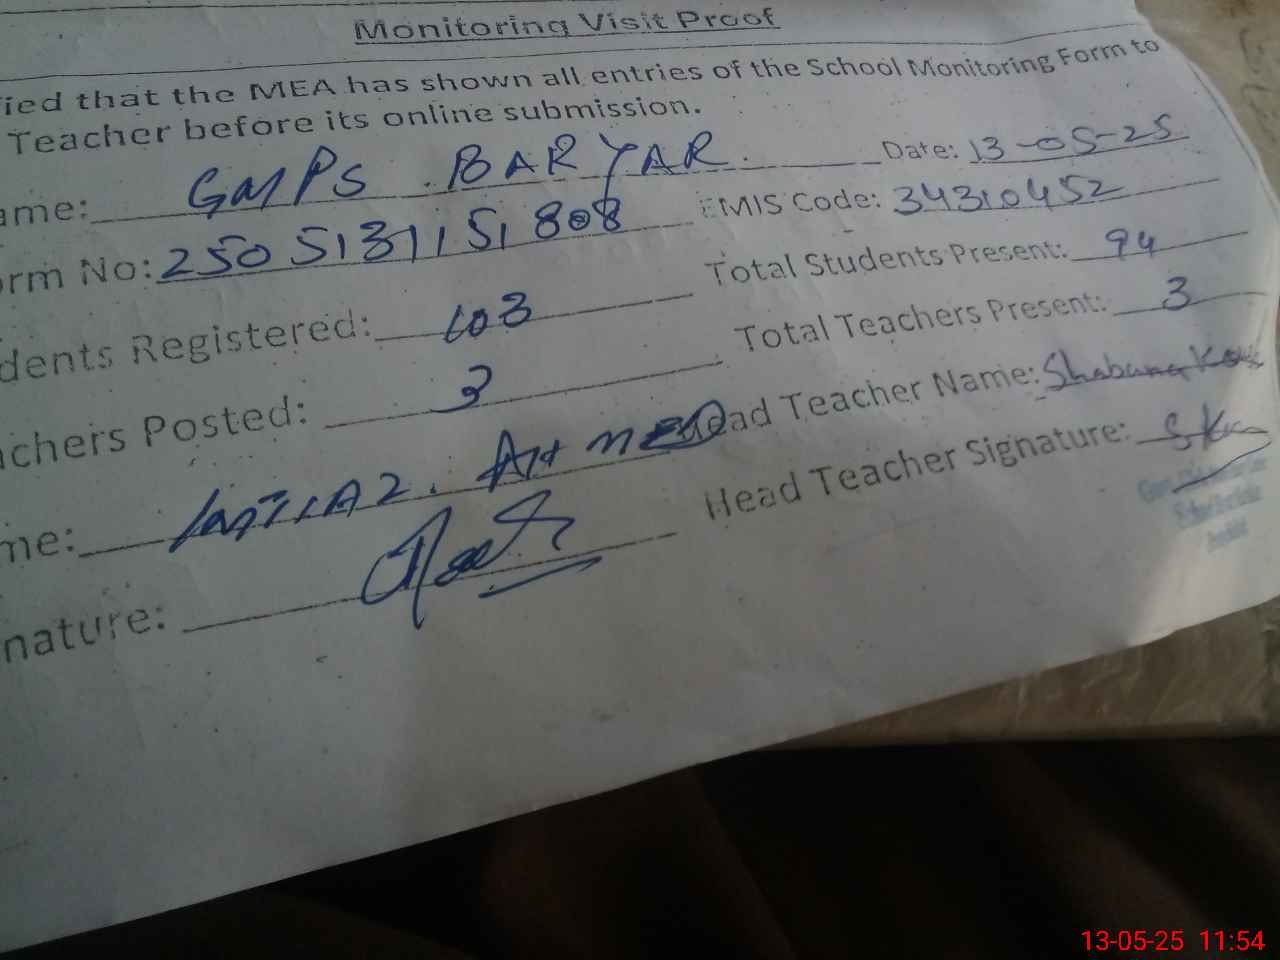 Monitoring Visit Proof
fied that the MEA has shown all entries of the School Monitoring Form to
Teacher before its online submission.
ame: GMPS. BARYAR. Date: 13-05-25
orm No: 2505131151808 EMIS Code: 34310452
dents Registered: 103 Total Students Present: 94
achers Posted: 3 Total Teachers Present: 3
me: Ahmed Head Teacher Name: Shabana
nature: Head Teacher Signature:
13-05-25 11:54